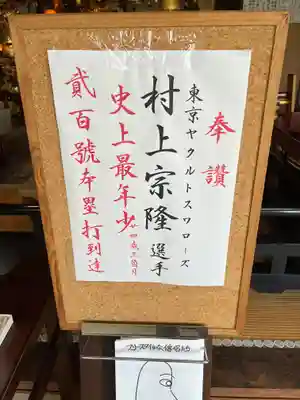 奉讃
東京ヤクルトスワローズ
村上宗隆選手
史上最年少廿四歳三箇月
貳百號本塁打到達